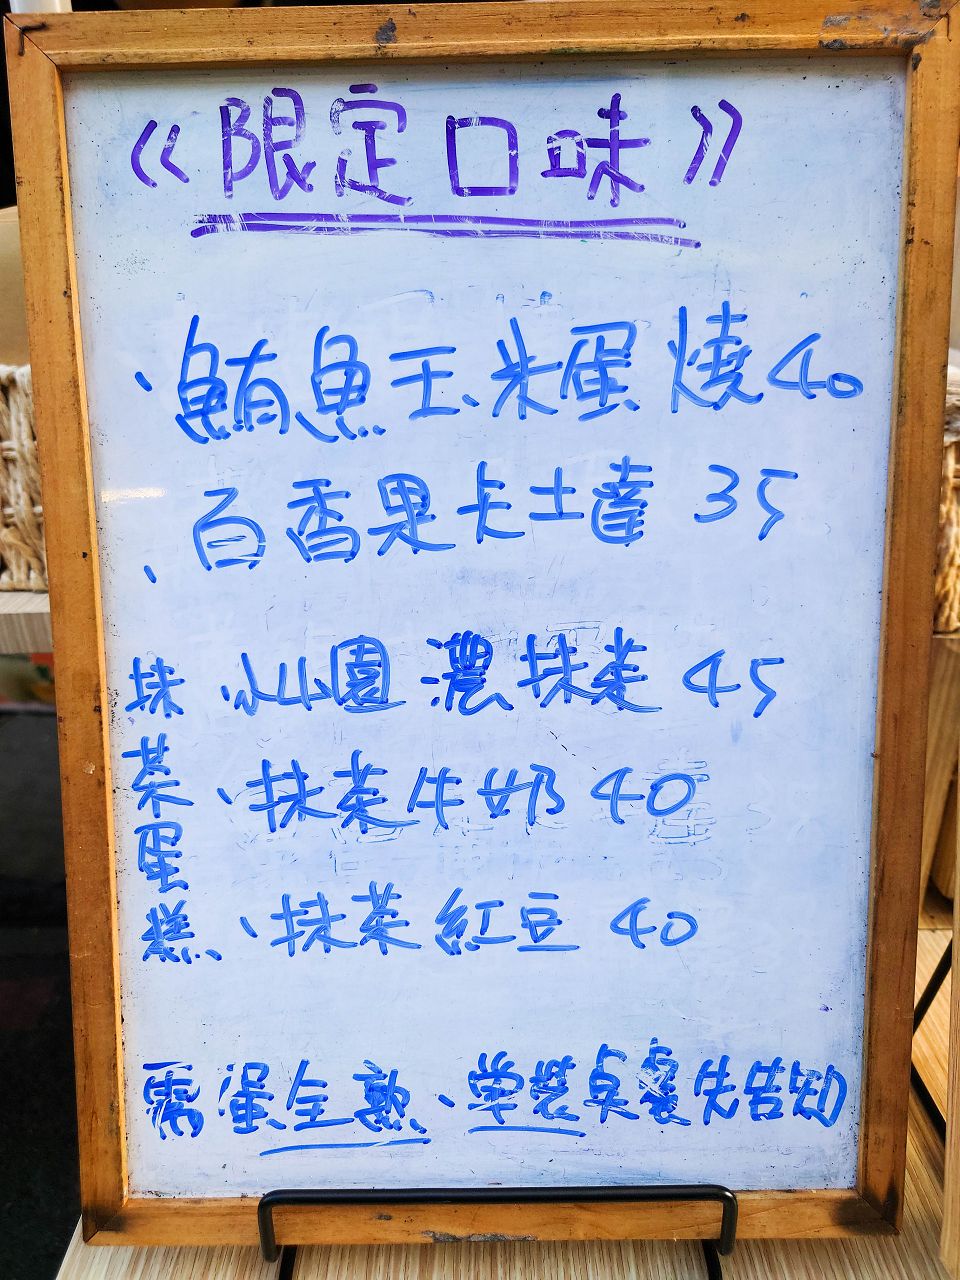 《限定口味》
、鮪魚玉米蛋燒40
、百香果卡士達 35
抹茶蛋糕
、小山園濃抹茶 45
、抹茶牛奶 40
、抹茶紅豆 40
需蛋全熟、單裝
餐先告知